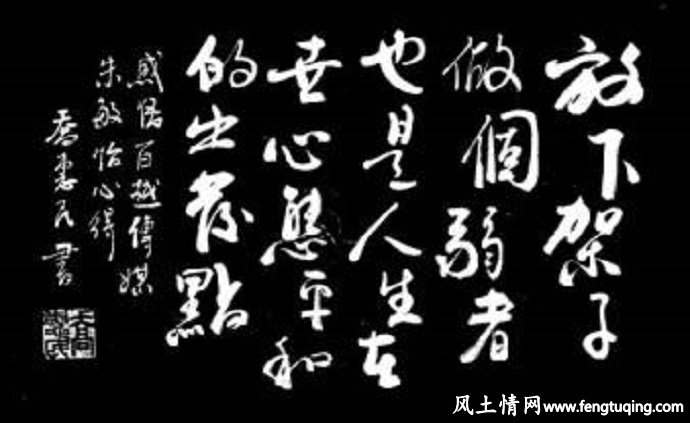 放下架子
做個弱者
也是人生在
世心態平和
的出發點
感悟百越傳媒
朱敏怡心得
喬惠民書
风土情网www.fengtuqing.com